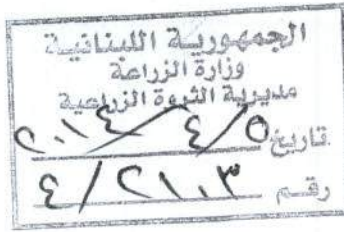 الجمهورية اللبنانية
وزارة الزراعة
مديرية الثروة الزراعية
تاريخ ٢٠١٤/٤/٥
رقم ٤/٢١٠٣